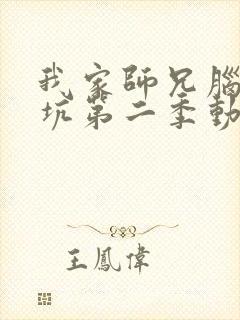 我家師兄腦
坑第二季動
王鳳偉